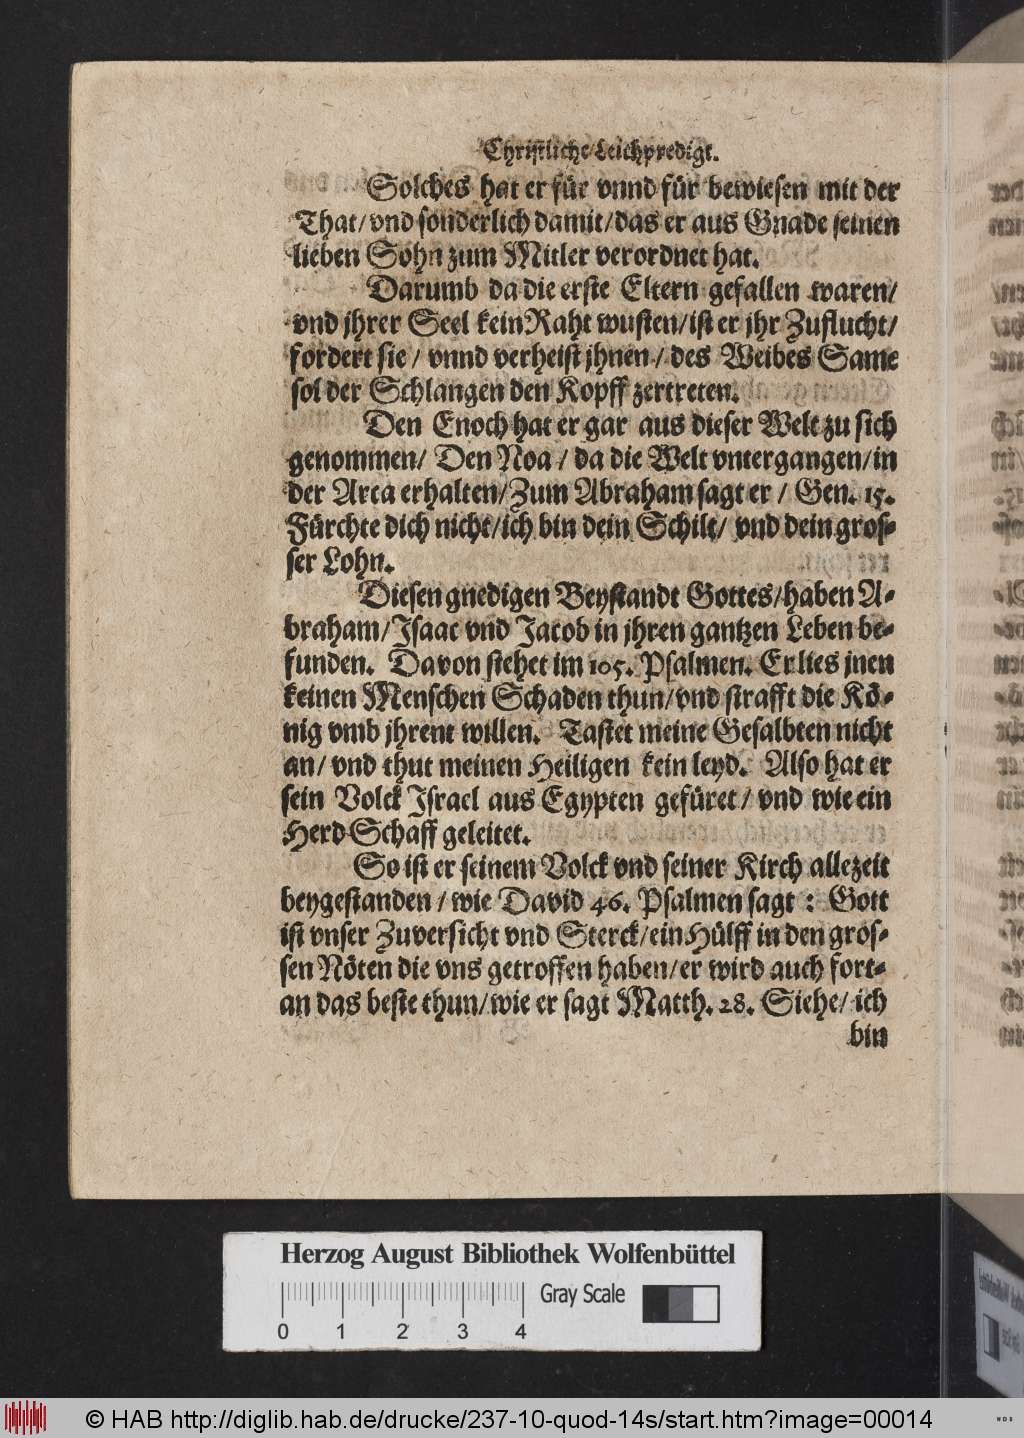 Christliche Leichpredigt.
Solches hat er für vnnd für bewiesen mit der
That/ vnd sonderlich damit/ das er aus Gnade seinen
lieben Sohn zum Mitler verordnet hat.
Darumb da die erste Eltern gefallen waren/
vnd jhrer Seel kein Raht wusten/ ist er jhr Zuflucht/
fordert sie/ vnnd verheist jhnen/ des Weibes Same
sol der Schlangen den Kopff zertreten.
Den Enoch hat er gar aus dieser Welt zu sich
genommen/ Den Noa/ da die Welt vntergangen/ in
der Arca erhalten/ Zum Abraham sagt er/ Gen. 15.
Fürchte dich nicht/ ich bin dein Schilt/ vnd dein gros-
ser Lohn.
Diesen gnedigen Beystandt Gottes/ haben A-
braham/ Isaac vnd Jacob in jhren gantzen Leben be-
funden. Davon stehet im 105. Psalmen. Er lies jnen
keinen Menschen Schaden thun/ vnd strafft die Kö-
nig vmb jhrent willen. Tastet meine Gesalbten nicht
an/ vnd thut meinen Heiligen kein leyd. Also hat er
sein Volck Israel aus Egypten gefüret/ vnd wie ein
Herd Schaff geleitet.
So ist er seinem Volck vnd seiner Kirch allezeit
beygestanden/ wie David 46. Psalmen sagt: Gott
ist vnser Zuversicht vnd Sterck/ ein Hülff in den gros-
sen Nöten die vns getroffen haben/ er wird auch fort-
an das beste thun/ wie er sagt Matth. 28. Siehe/ ich
bin
Herzog August Bibliothek Wolfenbüttel
Gray Scale
0 1 2 3 4
© HAB http://diglib.hab.de/drucke/237-10-quod-14s/start.htm?image=00014